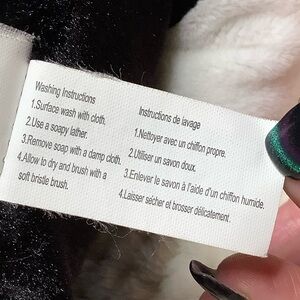 Washing Instructions
1.Surface wash with cloth.
2.Use a soapy lather.
3.Remove soap with a damp cloth.
4.Allow to dry and brush with a
soft bristle brush.
Instructions de lavage
1.Nettoyer avec un chiffon propre.
2.Utiliser un savon doux.
3.Enlever le savon à l'aide d'un chiffon humide.
4.Laisser sécher et brosser délicatement.